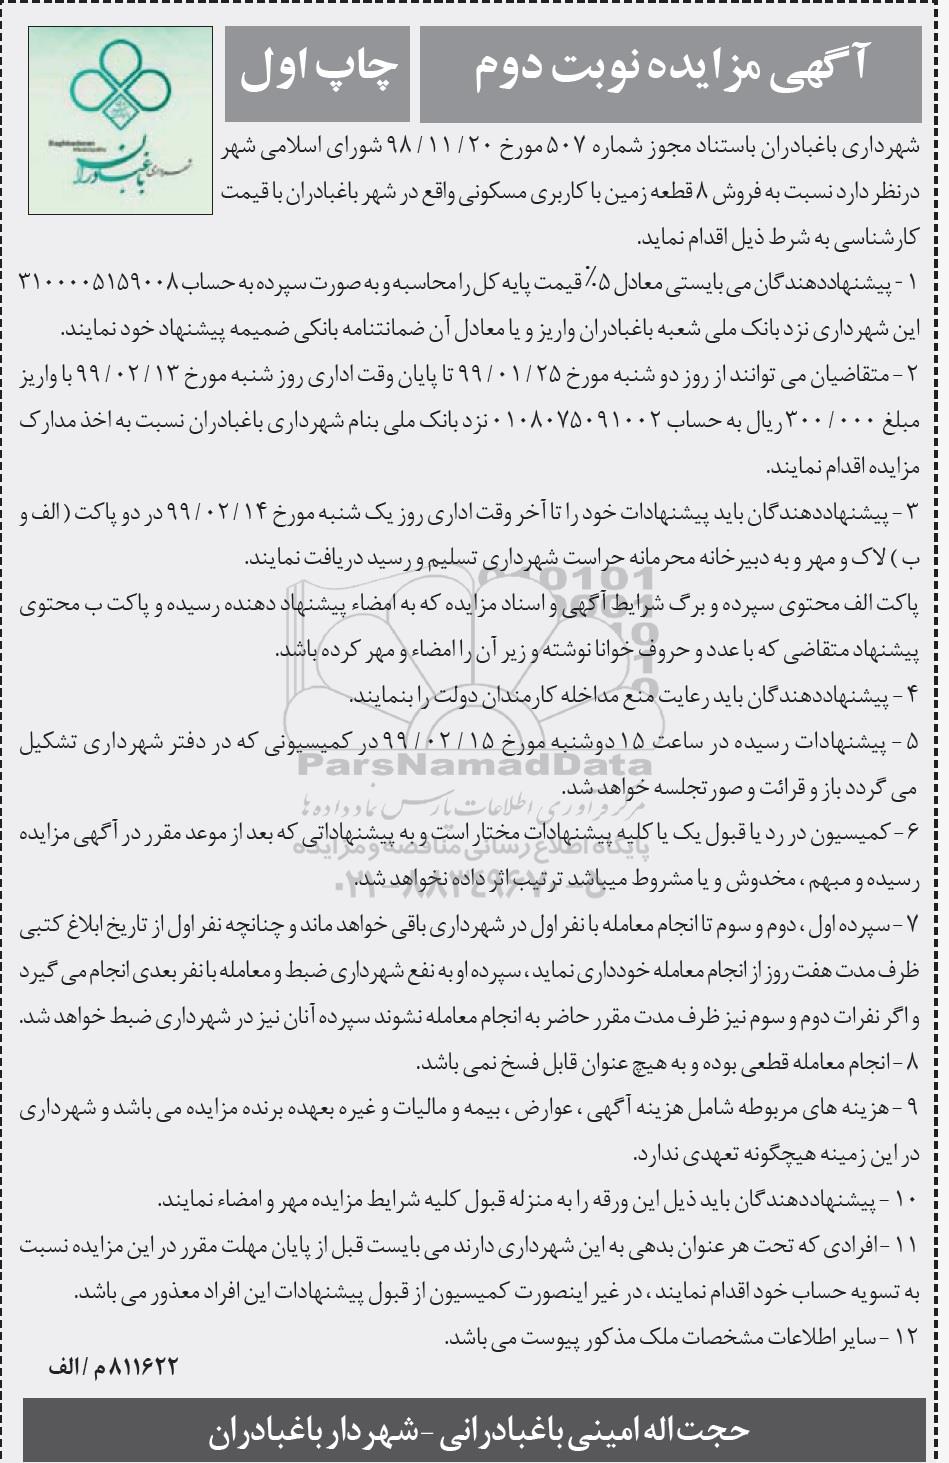 آگهی مزایده نوبت دوم
چاپ اول
Baghbaderan
Municipality
شهرداری باغبادران
شهرداری باغبادران باستناد مجوز شماره ۵۰۷ مورخ ۲۰ / ۱۱ / ۹۸ شورای اسلامی شهر
درنظر دارد نسبت به فروش ۸ قطعه زمین با کاربری مسکونی واقع در شهر باغبادران با قیمت
کارشناسی به شرط ذیل اقدام نماید.
۱ - پیشنهاددهندگان می بایستی معادل ۵٪ قیمت پایه کل را محاسبه و به صورت سپرده به حساب ۳۱۰۰۰۰۵۱۵۹۰۰۸
این شهرداری نزد بانک ملی شعبه باغبادران واریز و یا معادل آن ضمانتنامه بانکی ضمیمه پیشنهاد خود نمایند.
۲ - متقاضیان می توانند از روز دو شنبه مورخ ۲۵ / ۰۱ / ۹۹ تا پایان وقت اداری روز شنبه مورخ ۱۳ / ۰۲ / ۹۹ با واریز
مبلغ ۰۰۰ / ۳۰۰ ریال به حساب ۰۱۰۸۰۷۵۰۹۱۰۰۲ نزد بانک ملی بنام شهرداری باغبادران نسبت به اخذ مدارک
مزایده اقدام نمایند.
۳ - پیشنهاددهندگان باید پیشنهادات خود را تا آخر وقت اداری روز یک شنبه مورخ ۱۴ / ۰۲ / ۹۹ در دو پاکت ( الف و
ب ) لاک و مهر و به دبیرخانه محرمانه حراست شهرداری تسلیم و رسید دریافت نمایند.
پاکت الف محتوی سپرده و برگ شرایط آگهی و اسناد مزایده که به امضاء پیشنهاد دهنده رسیده و پاکت ب محتوی
پیشنهاد متقاضی که با عدد و حروف خوانا نوشته و زیر آن را امضاء و مهر کرده باشد.
۴ - پیشنهاددهندگان باید رعایت منع مداخله کارمندان دولت را بنمایند.
۵ - پیشنهادات رسیده در ساعت ۱۵ دوشنبه مورخ ۱۵ / ۰۲ / ۹۹ در کمیسیونی که در دفتر شهرداری تشکیل
ParsNamadData
می گردد باز و قرائت و صورتجلسه خواهد شد.
مرکز فرآوری اطلاعات پارس نماد داده ها
۶ - کمیسیون در رد یا قبول یک یا کلیه پیشنهادات مختار است و به پیشنهاداتی که بعد از موعد مقرر در آگهی مزایده
پایگاه اطلاع رسانی مناقصه و مزایده
رسیده و مبهم ، مخدوش و یا مشروط میباشد ترتیب اثر داده نخواهد شد.
۰۲۱-۸۸۳۴۹۶۷۰-۵
۷ - سپرده اول ، دوم و سوم تا انجام معامله با نفر اول در شهرداری باقی خواهد ماند و چنانچه نفر اول از تاریخ ابلاغ کتبی
ظرف مدت هفت روز از انجام معامله خودداری نماید ، سپرده او به نفع شهرداری ضبط و معامله با نفر بعدی انجام می گیرد
و اگر نفرات دوم و سوم نیز ظرف مدت مقرر حاضر به انجام معامله نشوند سپرده آنان نیز در شهرداری ضبط خواهد شد.
۸ - انجام معامله قطعی بوده و به هیچ عنوان قابل فسخ نمی باشد.
۹ - هزینه های مربوطه شامل هزینه آگهی ، عوارض ، بیمه و مالیات و غیره بعهده برنده مزایده می باشد و شهرداری
در این زمینه هیچگونه تعهدی ندارد.
۱۰ - پیشنهاددهندگان باید ذیل این ورقه را به منزله قبول کلیه شرایط مزایده مهر و امضاء نمایند.
۱۱ - افرادی که تحت هر عنوان بدهی به این شهرداری دارند می بایست قبل از پایان مهلت مقرر در این مزایده نسبت
به تسویه حساب خود اقدام نمایند ، در غیر اینصورت کمیسیون از قبول پیشنهادات این افراد معذور می باشد.
۱۲ - سایر اطلاعات مشخصات ملک مذکور پیوست می باشد.
۸۱۱۶۲۲ م / الف
حجت اله امینی باغبادرانی - شهردار باغبادران